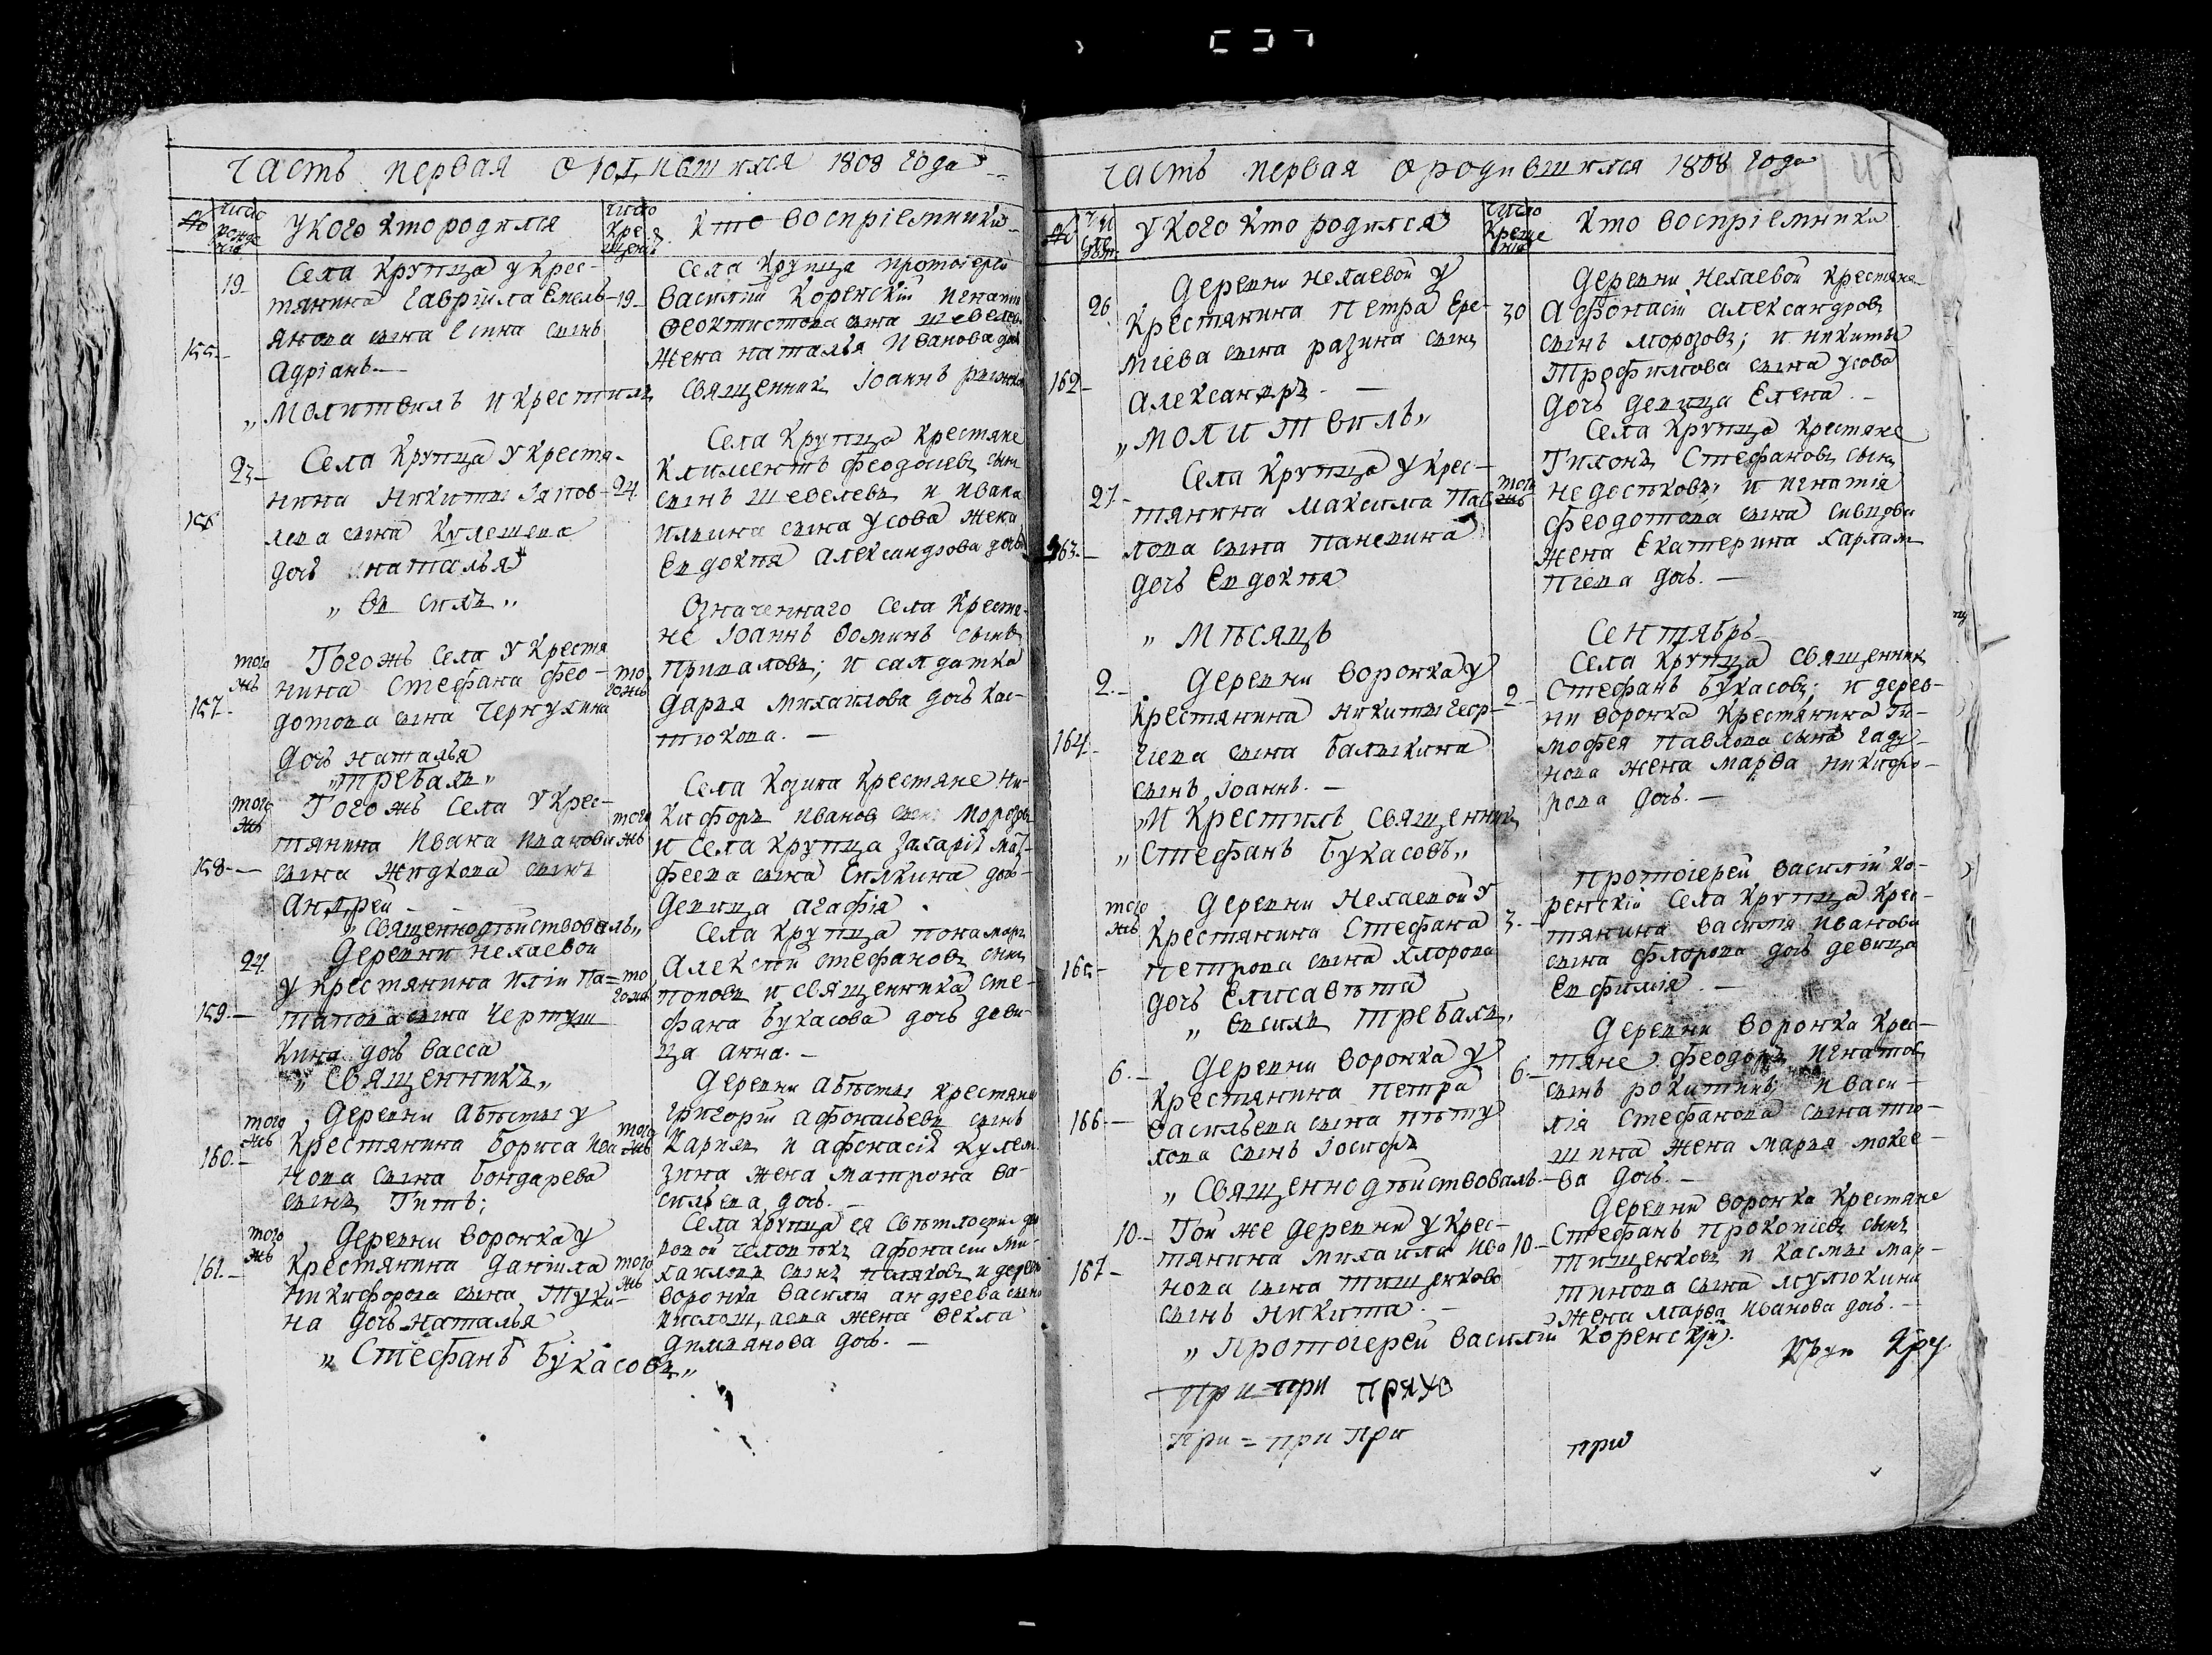 Часть первая о родившихся 1808 года
№
число рожде нiя
у кого кто родился
число креще нiя
кто восприемники
155.
19
Села Крупца у крес-
тянина Гавриила Емель-
янова сына Есина сынъ
Адрiанъ.
19
Села Крупца протоiерей
Василiй Коренскiй Игнатiя
Феоктистова сына Шевелева
жена Наталья Иванова дочь
„Молитвилъ и крестилъ священникъ Iоаннъ
156
23
Села Крупца у крестя-
нина Никиты Яков-
лева сына Кулешева
дочь Наталья
„въ сихъ„
24
Села Крупца крестяне
Климентъ Феодосиевъ сын
сынъ Шевелевъ и Ивана
Ильина сына Усова жена
Евдокия Александрова дочь
157
того жъ
Тогожъ Села у крестя
нина Стефана Фео-
дотова сына Чернухина
дочь Наталья
„требахъ„
то гожъ
Означеннаго Села кресте-
не Iоаннъ Фоминъ сынъ
Привалов; и салдатка
Дарья Михаилова дочь Кас-
тюкова.
158
того жъ
Тогожъ Села у крес-
тянина Ивана Иванова
сына Жидкова сынъ
Андрей
„священнодѣйствовалъ„
того жъ
Села Козина крестяне Ни-
кифоръ Иванов сын Морозовъ
и Села Крупца Захарiя Мат-
феева сына Енякина дочь
девица Агафiя
159.
24
Деревни Нехаевой
у крестянина Илiи По-
тапова сына Чертуш
кина дочь Васса
„Священникъ„
то гожъ
Села Крупца понамарь
Алексѣй Стефановъ сынъ
Поповъ и священника Сте-
фана Букасова дочь деви-
ца Анна.
160.
того жъ
Деревни Абѣсты у
крестянина Бориса Ива
нова сына Бондарева
сынъ Титъ;
того жъ
Деревни Абѣсты крестяне
Григорiй Афонасьевъ сынъ
Карпов и Афонасiй Кулем
зина жена Матрона Ва-
сильева дочь.
161.
того жъ
Деревни Воронка у
крестянина Данiила
Никифорова сына Туки-
на дочь Наталья
„Стефанъ Букасовъ„
того жъ
Села Крупца ея
человѣкъ Афонасiй Ми-
хаиловъ сынъ Поляковъ и дерев
Воронка Василiя Андреева сына
жена Фекла
Димиянова дочь.
Часть первая о родившихся 1808 года
№
у кого кто родился
число креще нiя
кто восприемники
162
26
Деревни Нехаевой у
крестянина Петра Ере-
мiева сына Разина сынъ
Александръ.
„молитвилъ„
30
Деревни Нехаевой крестяне
Афонасiй Александровъ
сынъ Морозовъ; и Никиты
Трофимова сына Усова
дочь девица Елена.
163.
27.
Села Крупца у крес-
тянина Максима Пав
лова сына Паневина
дочь Евдокия
того жъ
Села Крупца крестяне
Тихонъ Стефановъ сынъ
Недостковъ; и Игнатiя
Феодотова сына Сивцова
жена Екатерина Харлам
пiева дочь.
„Мѣсяцъ
Сентябрь
164.
2.
Деревни Воронка у
крестянина Никиты Геор-
гiева сына Балыкина
сынъ Iоаннъ.
„и крестилъ священникъ
„Стефанъ Букасовъ„
2
Села Крупца священник
Стефанъ Букасовъ; и дерев-
ни Воронка крестянина Ти-
мофея Павлова сына Гаду-
нова жена Марфа Никифо-
рова дочь.
165
того жъ
Деревни Нехаевой у
крестянина Стефана
Петрова сына Хлорова
дочь Елисавѣта
„въ сихъ требахъ„
3.
Протоiерей Василiй Ко-
ренскiй Села Крупца крес-
тянина Василiя Иванова
сына Флорова дочь девица
Евфимiя.
166
6.
Деревни Воронка у
крестянина Петра
Васильева сына Пѣту
хова сынъ Iосифъ
„Священнодѣйствовалъ.
6.
Деревни Воронка крес-
тяне Феодоръ Игнатов
сынъ Рокитинъ; и Васи-
лiя Стефанова сына Тю-
шина жена Марья Мокее-
ва дочь.
167
10.
Той же деревни у крес-
тянина Михаила Ива
нова сына Тищенкова
сынъ Никита.
10
Деревни Воронка крестяне
Стефанъ Прокопиевъ сынъ
Тищенковъ и Касты Мар-
тинова сына Мулюкина
жена Марфа Иванова дочь.
„Протоiерей Василiй Коренскiй.
Круп Кру.
При при прихо
При = при при
при